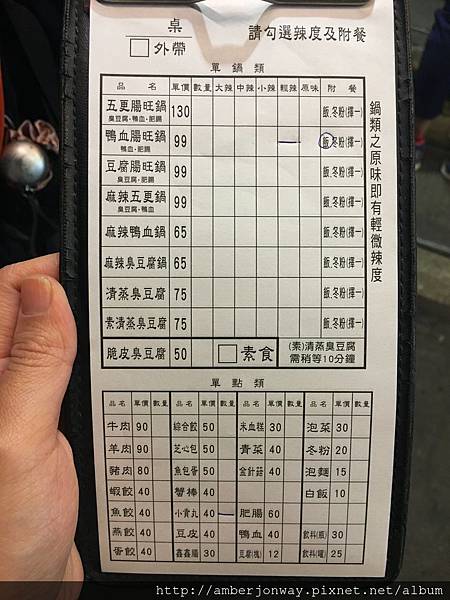 桌 請勾選辣度及附餐
□外帶
單鍋類
品名 單價 數量 大辣 中辣 小辣 輕辣 原味 附餐
五更腸旺鍋 130 飯.冬粉(擇一)
臭豆腐·鴨血·肥腸
鴨血腸旺鍋 99 一 飯.冬粉(擇一)
鴨血·肥腸
豆腐腸旺鍋 99 飯.冬粉(擇一)
臭豆腐·肥腸
麻辣五更鍋 99 飯.冬粉(擇一)
臭豆腐·鴨血
麻辣鴨血鍋 65 飯.冬粉(擇一)
麻辣臭豆腐鍋 65 飯.冬粉(擇一)
清蒸臭豆腐 75 飯.冬粉(擇一)
素清蒸臭豆腐 75 飯.冬粉(擇一)
脆皮臭豆腐 50 □素食 (素)清蒸臭豆腐
需稍等10分鐘
鍋類之原味即有輕微辣度
單點類
品名 單價 數量 品名 單價 數量 品名 單價 數量 品名 單價 數量
牛肉 90 綜合餃 50 米血糕 30 泡菜 30
羊肉 90 芝心包 50 青菜 40 冬粉 20
豬肉 80 魚包蛋 50 金針菇 40 泡麵 15
蝦餃 40 蟹棒 40 白飯 10
魚餃 40 小貢丸 40 一 肥腸 60
燕餃 40 豆皮 40 鴨血 40 飲料(瓶) 30
蛋餃 40 鑫鑫腸 30 豆腐(塊) 12 飲料(罐) 25
http://amberjonway.pixnet.net/album